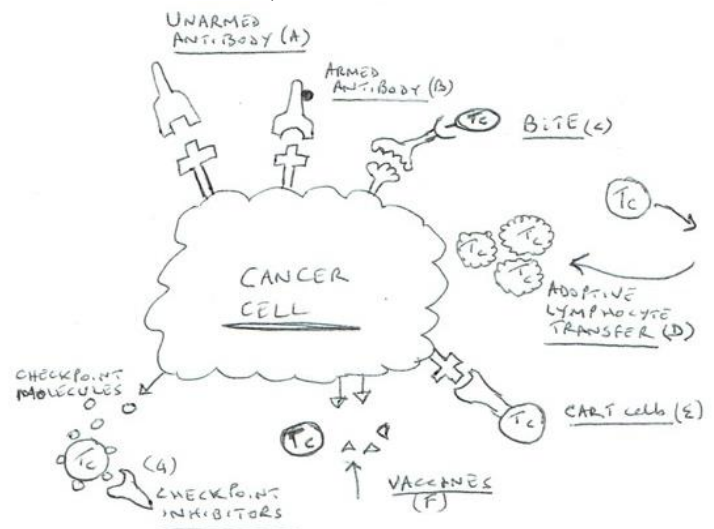 UNARMED
ANTIBODY (A)
ARMED
ANTIBODY (B)
Tc
BiTE (C)
Tc
Tc
Tc
Tc
ADOPTIVE
LYMPHOCYTE
TRANSFER (D)
CANCER
CELL
CHECKPOINT
MOLECULES
Tc
CART cells (E)
Tc
Tc
(G)
CHECKPOINT
INHIBITORS
VACCINES
(F)